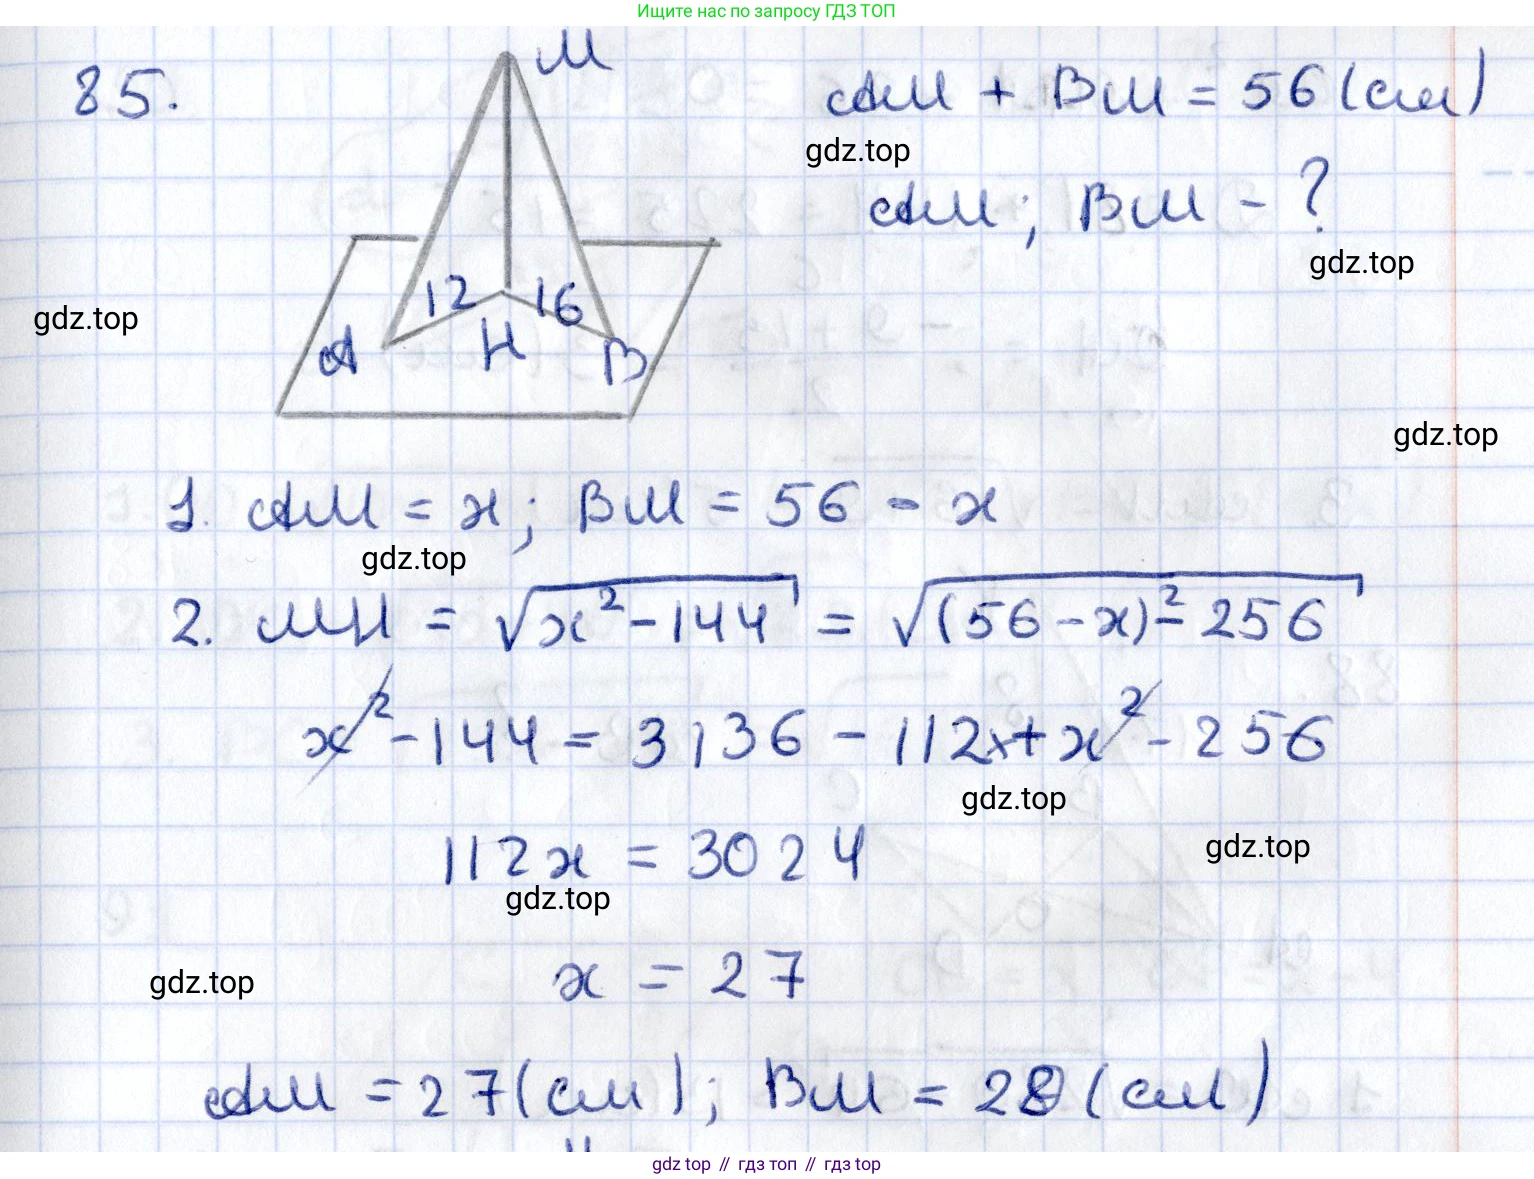 Ищите нас по запросу ГДЗ ТОП
85.
M
AM + BM = 56 (см)
gdz.top
AM; BM - ?
gdz.top
12 16
gdz.top
A H B
gdz.top
1. AM = x; BM = 56 - x
gdz.top
2. MH = √x² - 144 = √(56 - x)² - 256
x² - 144 = 3136 - 112x + x² - 256
gdz.top
112x = 3024
gdz.top
gdz.top
x = 27
gdz.top
AM = 27 (см); BM = 28 (см)
gdz top // гдз топ // гдз top